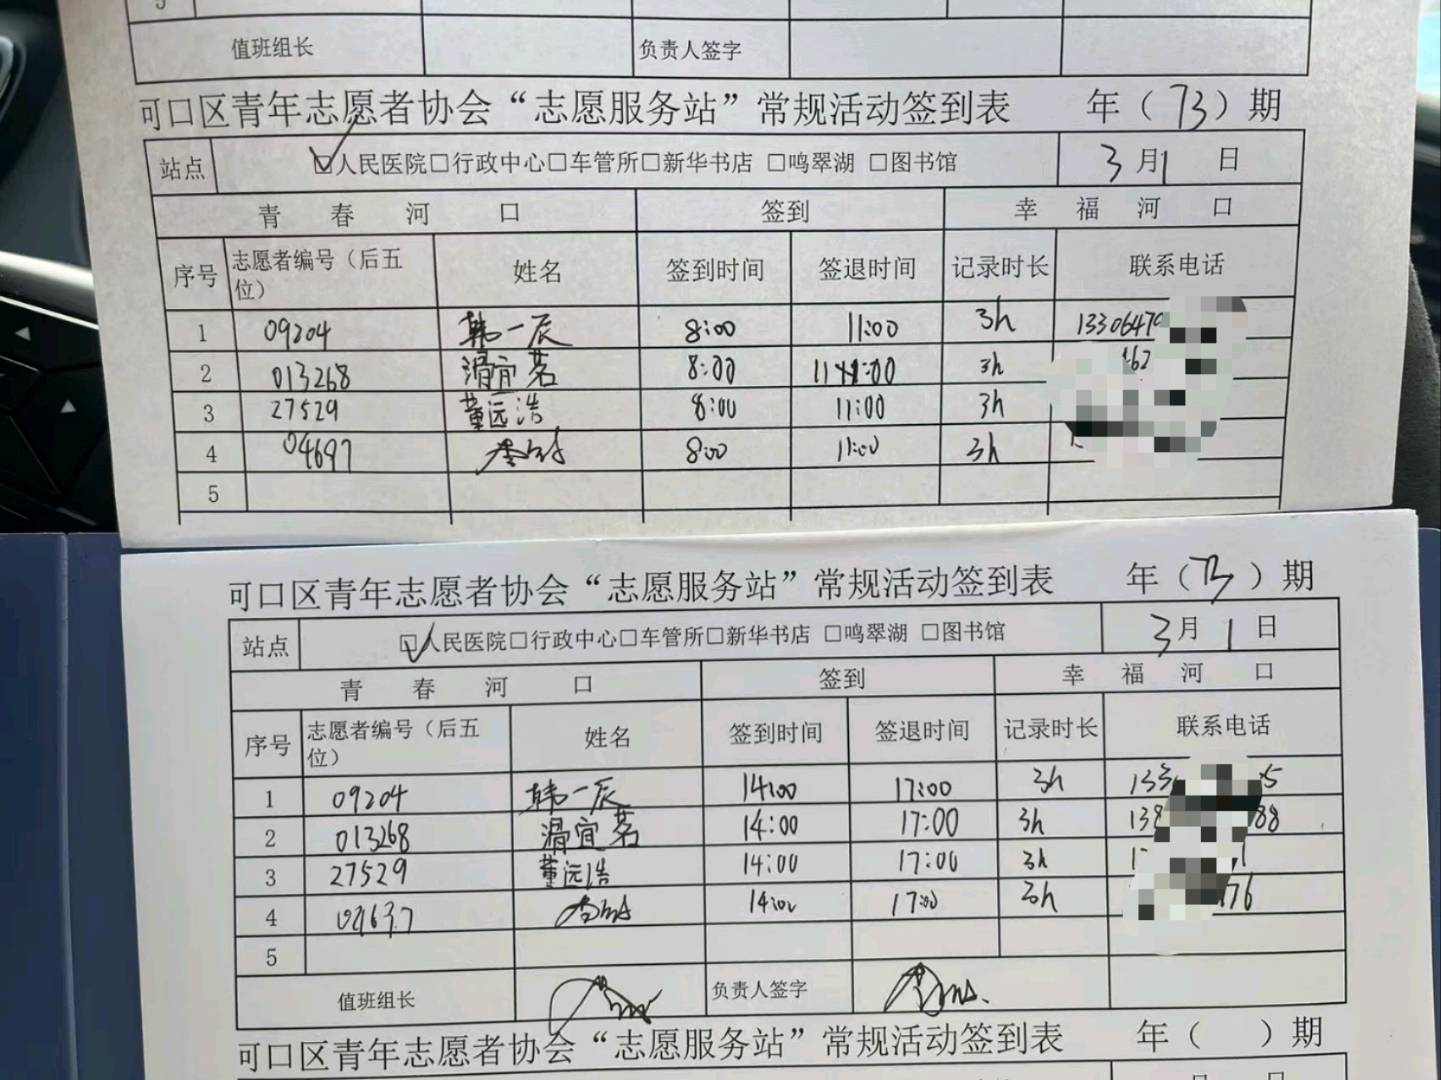 5
值班组长 负责人签字
可口区青年志愿者协会“志愿服务站”常规活动签到表 年（73）期
站点 □人民医院□行政中心□车管所□新华书店 □鸣翠湖 □图书馆 3月1日
青春河口 签到 幸福河口
序号 志愿者编号（后五位） 姓名 签到时间 签退时间 记录时长 联系电话
1 09204 韩一辰 8:00 11:00 3h 1330647
2 013268 滑宜茗 8:00 11:00 3h 62
3 27529 董远浩 8:00 11:00 3h
4 04697 8:00 11:00 3h
5
可口区青年志愿者协会“志愿服务站”常规活动签到表 年（73）期
站点 □人民医院□行政中心□车管所□新华书店 □鸣翠湖 □图书馆 3月1日
青春河口 签到 幸福河口
序号 志愿者编号（后五位） 姓名 签到时间 签退时间 记录时长 联系电话
1 09204 韩一辰 14:00 17:00 3h 133 5
2 013268 滑宜茗 14:00 17:00 3h 138 88
3 27529 董远浩 14:00 17:00 3h 1 1
4 14:00 17:00 3h 176
5
值班组长 负责人签字
可口区青年志愿者协会“志愿服务站”常规活动签到表 年（ ）期
月 日